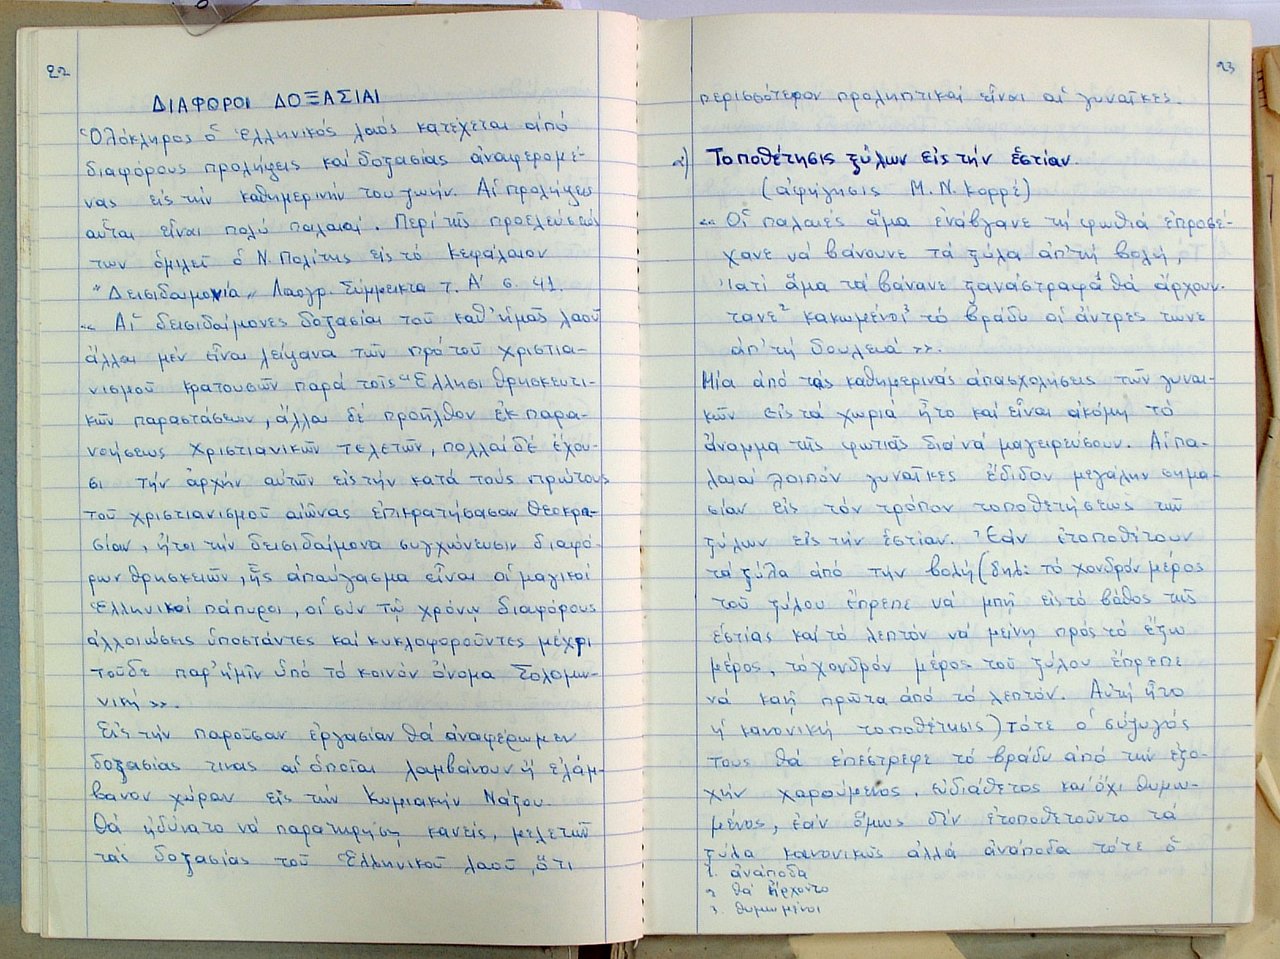 22
ΔΙΑΦΟΡΟΙ ΔΟΞΑΣΙΑΙ
Ὁλόκληρος ὁ ἑλληνικός λαός κατέχεται ἀπό
διαφόρους προλήψεις καί δοξασίας ἀναφερομέ-
νας εἰς τήν καθημερινήν του ζωήν. Αἱ προλήψεις
αὗται εἶναι πολύ παλαιαί. Περί τῆς προελεύσεώς
των ὁμιλεῖ ὁ Ν. Πολίτης εἰς τό κεφάλαιον
"Δεισιδαιμονία„ Λαογρ. Σύμμεικτα τ. Α' σ. 41.
« Αἱ δεισιδαίμονες δοξασίαι τοῦ καθ' ἡμᾶς λαοῦ
ἄλλαι μέν εἶναι λείψανα τῶν πρό τοῦ χριστια-
νισμοῦ κρατουσῶν παρά τοῖς Ἕλλησι θρησκευτι-
κῶν παραστάσεων, ἄλλαι δέ προῆλθον ἐκ παρα-
νοήσεως χριστιανικῶν τελετῶν, πολλαί δέ ἔχου-
σι τήν ἀρχήν αὐτῶν εἰς τήν κατά τούς πρώτους
τοῦ χριστιανισμοῦ αἰῶνας ἐπικρατήσασαν θεοκρα-
σίαν, ἤτοι τήν δεισιδαίμονα συγχώνευσιν διαφό-
ρων θρησκειῶν, ἧς ἀπαύγασμα εἶναι οἱ μαγικοί
ἑλληνικοί πάπυροι, οἱ σύν τῷ χρόνῳ διαφόρους
ἀλλοιώσεις ὑποστάντες καί κυκλοφοροῦντες μέχρι
τοῦδε παρ' ἡμῖν ὑπό τό κοινόν ὄνομα Σολομω-
νική».
Εἰς τήν παροῦσαν ἐργασίαν θά ἀναφέρωμεν
δοξασίας τινας αἱ ὁποῖαι λαμβαίνουν ἤ ἐλάμ-
βανον χώραν εἰς τήν Κωμιακήν Νάξου.
Θά ἠδύνατο νά παρατηρήσῃ κανείς, μελετῶν
τάς δοξασίας τοῦ Ἑλληνικοῦ λαοῦ, ὅτι
23
περισσότερον προληπτικαί εἶναι αἱ γυναῖκες.
α) Τοποθέτησις ξύλων εἰς τήν ἑστίαν
(ἀφήγησις Μ. Ν. Κορρέ)
« Οἱ παλαιές ἅμα ἐνάβγανε τή φωθιά ἐπροσέ-
χανε νά βάνουνε τά ξύλα ἀπ' τή βολή,
γιατί ἅμα τά βάνανε ξανάστραφα¹ θά ἄρχουν-
τανε² κακωμένοι³ τό βράδυ οἱ ἄντρες τωνε
ἀπ' τή δουλειά».
Μία ἀπό τάς καθημερινάς ἀπασχολήσεις τῶν γυναι-
κῶν εἰς τά χωριά ἦτο καί εἶναι ἀκόμη τό
ἄναμμα τῆς φωτιᾶς διά νά μαγειρεύσουν. Αἱ πα-
λαιαί λοιπόν γυναῖκες ἔδιδον μεγάλην σημα-
σίαν εἰς τόν τρόπον τοποθετήσεως τῶν
ξύλων εἰς τήν ἑστίαν. Ἐάν ἐτοποθέτουν
τά ξύλα ἀπό τήν βολή (δηλ: τό χονδρόν μέρος
τοῦ ξύλου ἔπρεπε νά μπῇ εἰς τό βάθος τῆς
ἑστίας καί τό λεπτόν νά μείνῃ πρός τό ἔξω
μέρος, τό χονδρόν μέρος τοῦ ξύλου ἔπρεπε
νά καῇ πρῶτα ἀπό τό λεπτόν. Αὐτή ἦτο
ἡ κανονική τοποθέτησις) τότε ὁ σύζυγός
τους θά ἐπέστρεφε τό βράδυ ἀπό τήν ἐξο-
χήν χαρούμενος, εὐδιάθετος καί ὄχι θυμω-
μένος, ἐάν ὅμως δέν ἐτοποθετοῦντο τά
ξύλα κανονικῶς ἀλλά ἀνάποδα τότε ὁ
1. ἀνάποδα
2. θά ἤρχοντο
3. θυμωμένοι